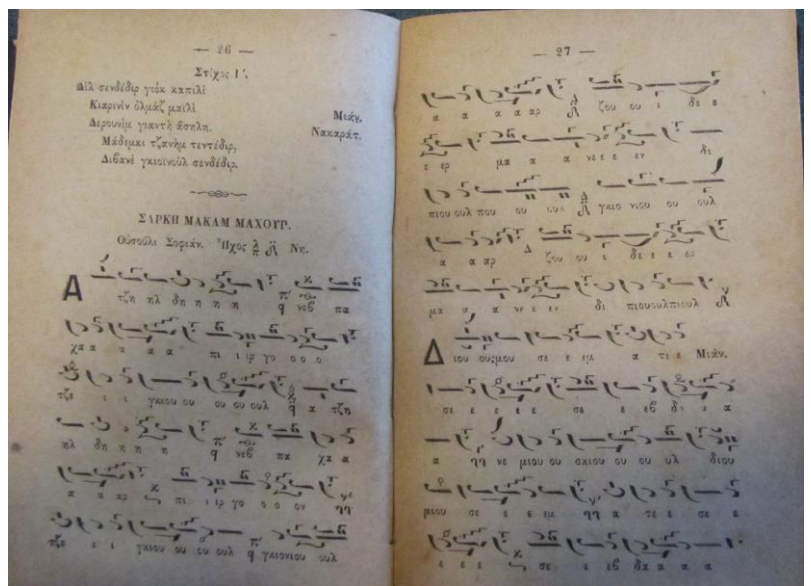 — 26 —
Στίχος Γ΄.
Δὶλ σενδέδιρ γιὸκ καπιλὶ
Κιαρινὶν ὀλμὰζ μαϊλὶ
Δερουνὶμ γιαντὴ ἄσηλη. Μιάν.
Μάδεμκι τζανὴμ τεντέδιρ, Νακαράτ.
Διβανὲ γκιοϊνοὺλ σενδέδιρ.
ΣΑΡΚΗ ΜΑΚΑΜ ΜΑΧΟΥΡ.
Οὐσοῦλι Σοφιάν. Ἦχος λ π Νη.
Α τζη ηλ δη η η η νεβ πα
χα α α α α πι ι ιρ γο ο ο ο
τζε ι ι γκιου ου ου ου ουλ α τζη
ηλ δη η η η νεβ πα χα α
α α αρ πι ι ιρ γο ο ο ον
τζε ι ι γκιου ου ου ουλ γκιονιου ουλ
— 27 —
α α α α αρ ζου ου ι δε ε
ε ερ μα α α νε ε ε εν δι
πιου ουλ που ου ουλ γκιο νιου ου ουλ
α α αρ ζου ου ι δε ε ε ερ
μα α α νε ε εν δι πιουουλπιουλ
Διου ουςμου σε ε εμ α τε ε Μιάν.
σε ε ε ε ε σε ε εβ δι α α
α νε μιου ου σκιου ου ου ουλ διου
μιου σε ε ε εμ α τε ε σε ε
ε ε ε σε ε εβ δα α α α